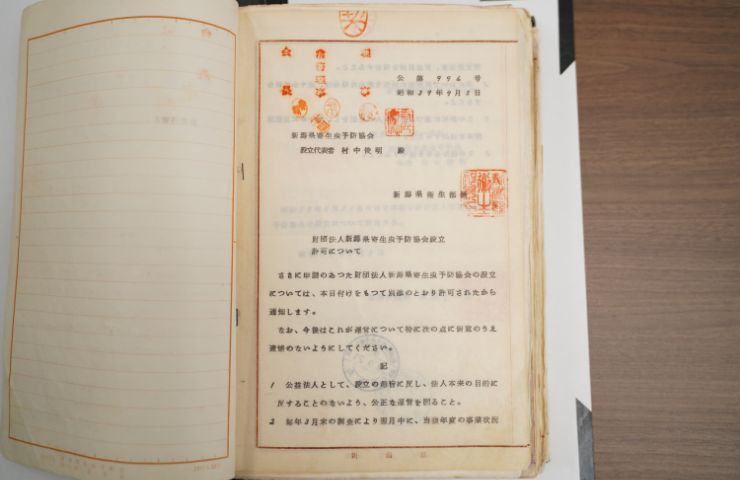 公第996号
昭和39年9月5日
新潟県寄生虫予防協会
設立代表者 村中俊明 殿
新潟県衛生部長
財団法人新潟県寄生虫予防協会設立
許可について
さきに申請のあつた財団法人新潟県寄生虫予防協会の設立
については、本日付けをもつて別紙のとおり許可されたから
通知します。
なお、今後はこれが運営について特に次の点に留意のうえ
遺憾のないようにしてください。
記
1 公益法人として、設立の趣旨に反し、法人本来の目的に
反することのないよう、公正な運営を図ること。
2 毎年3月末の調査により翌月中に、当該年度の事業状況